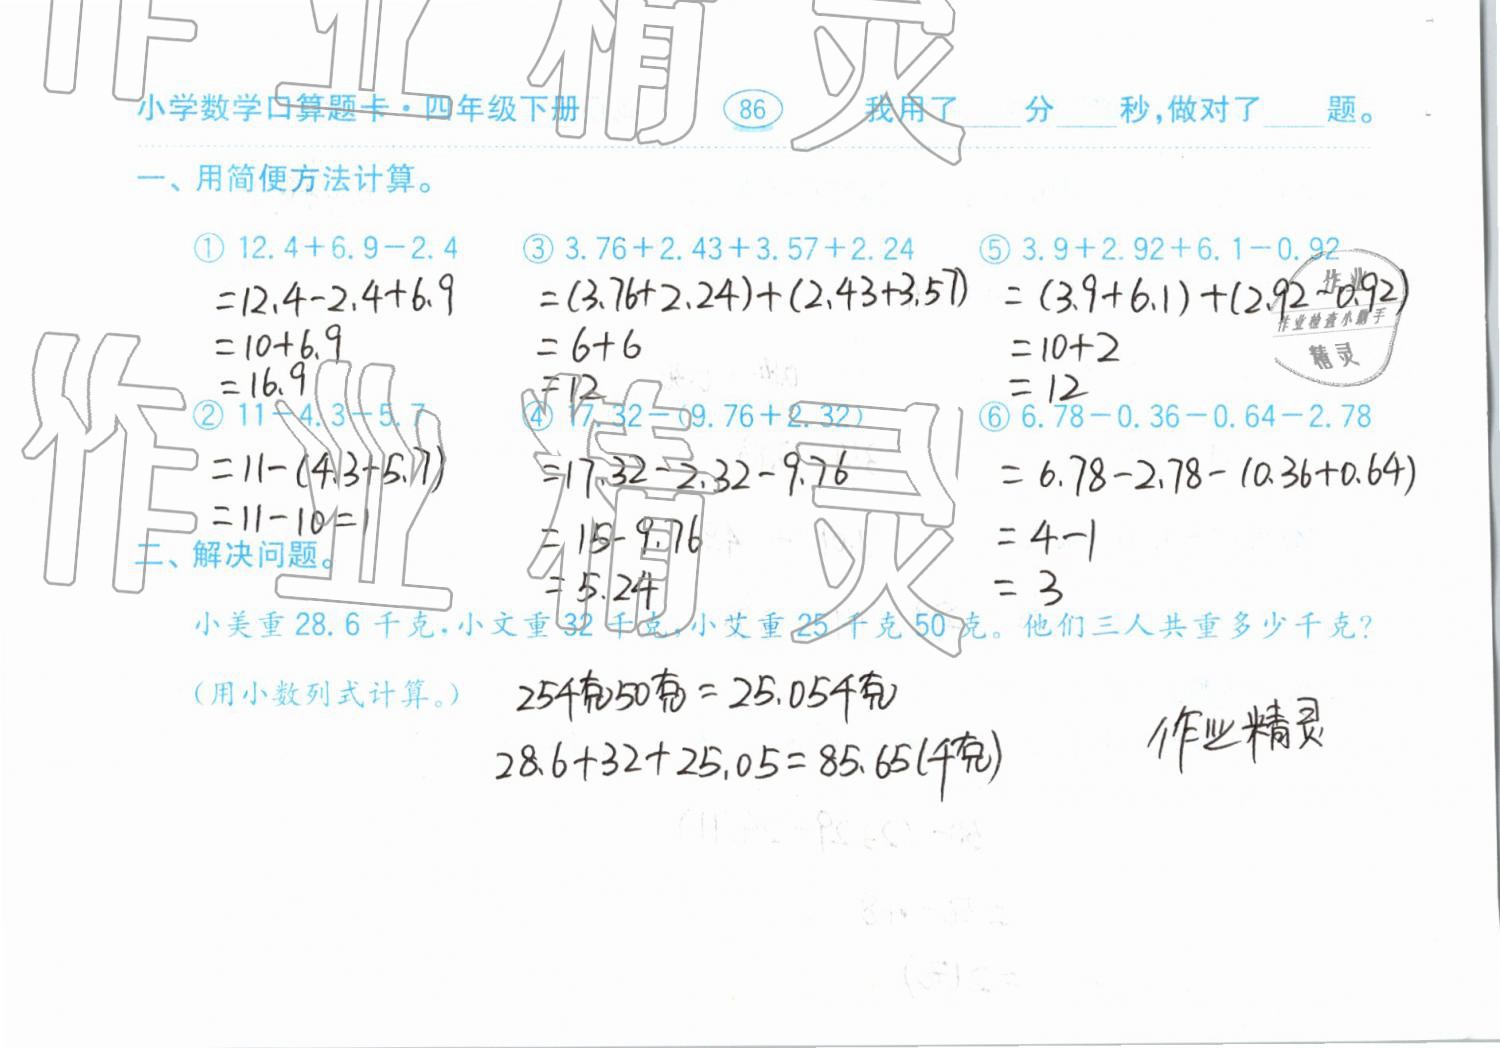 作业精灵
小学数学口算题卡·四年级下册 86 我用了____分____秒,做对了____题。
一、用简便方法计算。
① 12.4+6.9-2.4 ③ 3.76+2.43+3.57+2.24 ⑤ 3.9+2.92+6.1-0.92
=12.4-2.4+6.9 =(3.76+2.24)+(2.43+3.57) =(3.9+6.1)+(2.92-0.92)
=10+6.9 =6+6 =10+2
=16.9 =12 =12
作业
作业检查小帮手
精灵
② 11-4.3-5.7 ④ 17.32-(9.76+2.32) ⑥ 6.78-0.36-0.64-2.78
=11-(4.3+5.7) =17.32-2.32-9.76 =6.78-2.78-(0.36+0.64)
=11-10=1 =15-9.76 =4-1
=5.24 =3
作业精灵
二、解决问题。
小美重28.6千克,小文重32千克,小艾重25千克50克。他们三人共重多少千克?
(用小数列式计算。) 25千克50克=25.05千克
28.6+32+25.05=85.65(千克)
作业精灵